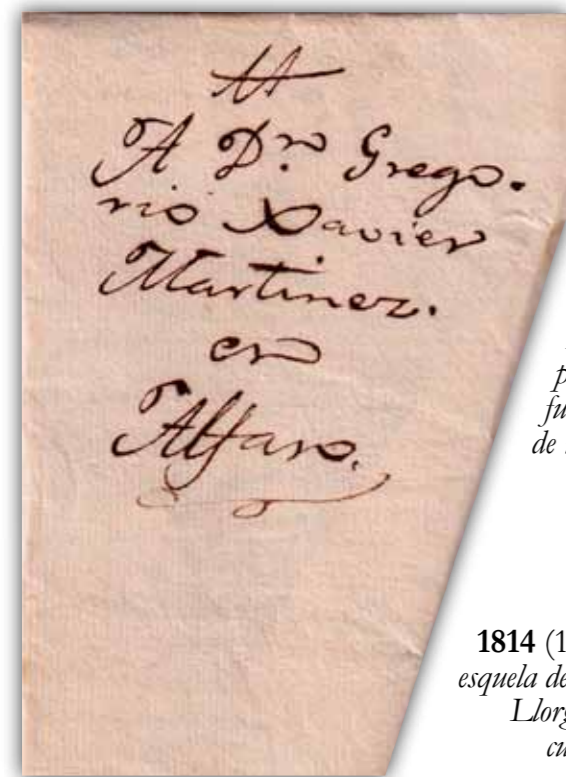 A D.n Grego.
rio Xavier
Martinez.
en
Alfaro.
p
fu
de
1814 (1
esquela de
Llorg
cu